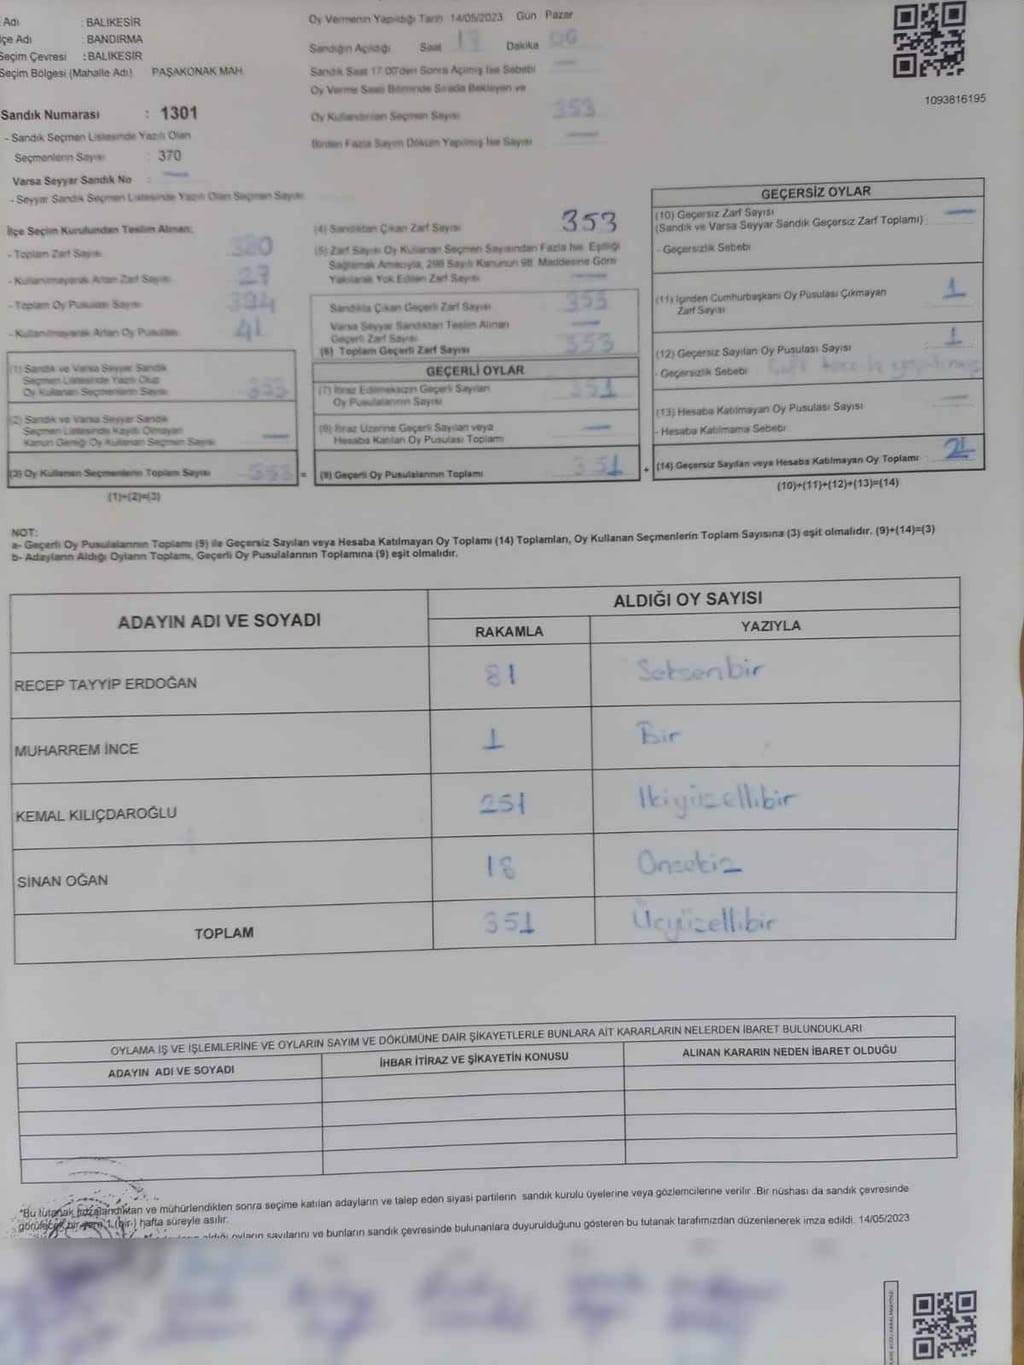 Adı : BALIKESİR
İlçe Adı : BANDIRMA
Seçim Çevresi : BALIKESİR
Seçim Bölgesi (Mahalle Adı) PAŞAKONAK MAH.
Sandık Numarası : 1301
- Sandık Seçmen Listesinde Yazılı Olan
Seçmenlerin Sayısı : 370
Varsa Seyyar Sandık No : —
- Seyyar Sandık Seçmen Listesinde Yazılı Olan Seçmen Sayısı
Oy Vermenin Yapıldığı Tarih 14/05/2023 Gün Pazar
Sandığın Açıldığı Saat 17 Dakika 06
Sandık Saat 17:00'den Sonra Açılmış İse Sebebi —
Oy Verme Saati Bitiminde Sırada Bekleyen ve
Oy Kullandırılan Seçmen Sayısı 353
Birden Fazla Sayım Döküm Yapılmış İse Sayısı —
1093816195
İlçe Seçim Kurulundan Teslim Alınan:
- Toplam Zarf Sayısı 380
- Kullanılmayarak Artan Zarf Sayısı 27
- Toplam Oy Pusulası Sayısı 394
- Kullanılmayarak Artan Oy Pusulası 41
(1) Sandık ve Varsa Seyyar Sandık
Seçmen Listesinde Yazılı Olup
Oy Kullanan Seçmenlerin Sayısı 353
(2) Sandık ve Varsa Seyyar Sandık
Seçmen Listesinde Kayıtlı Olmayan
Kanun Gereği Oy Kullanan Seçmen Sayısı —
(3) Oy Kullanan Seçmenlerin Toplam Sayısı 353 =
(1)+(2)=(3)
(4) Sandıktan Çıkan Zarf Sayısı 353
(5) Zarf Sayısı Oy Kullanan Seçmen Sayısından Fazla İse, Eşitliği
Sağlamak Amacıyla, 298 Sayılı Kanunun 98. Maddesine Göre
Yakılarak Yok Edilen Zarf Sayısı —
Sandıkta Çıkan Geçerli Zarf Sayısı 353
Varsa Seyyar Sandıktan Teslim Alınan
Geçerli Zarf Sayısı —
(6) Toplam Geçerli Zarf Sayısı 353
GEÇERLİ OYLAR
(7) İtiraz Edilmeksizin Geçerli Sayılan
Oy Pusulalarının Sayısı 351
(8) İtiraz Üzerine Geçerli Sayılan veya
Hesaba Katılan Oy Pusulası Toplamı —
(9) Geçerli Oy Pusulalarının Toplamı 351 +
GEÇERSİZ OYLAR
(10) Geçersiz Zarf Sayısı —
(Sandık ve Varsa Seyyar Sandık Geçersiz Zarf Toplamı)
- Geçersizlik Sebebi
(11) İçinden Cumhurbaşkanı Oy Pusulası Çıkmayan
Zarf Sayısı 1
(12) Geçersiz Sayılan Oy Pusulası Sayısı 1
- Geçersizlik Sebebi Çift tercih yapılmış
(13) Hesaba Katılmayan Oy Pusulası Sayısı —
- Hesaba Katılmama Sebebi
(14) Geçersiz Sayılan veya Hesaba Katılmayan Oy Toplamı 2
(10)+(11)+(12)+(13)=(14)
NOT:
a- Geçerli Oy Pusulalarının Toplamı (9) ile Geçersiz Sayılan veya Hesaba Katılmayan Oy Toplamı (14) Toplamları, Oy Kullanan Seçmenlerin Toplam Sayısına (3) eşit olmalıdır. (9)+(14)=(3)
b- Adayların Aldığı Oyların Toplamı, Geçerli Oy Pusulalarının Toplamına (9) eşit olmalıdır.
ADAYIN ADI VE SOYADI
ALDIĞI OY SAYISI
RAKAMLA YAZIYLA
RECEP TAYYİP ERDOĞAN 81 Seksenbir
MUHARREM İNCE 1 Bir
KEMAL KILIÇDAROĞLU 251 İkiyüzellibir
SİNAN OĞAN 18 Onsekiz
TOPLAM 351 Üçyüzellibir
OYLAMA İŞ VE İŞLEMLERİNE VE OYLARIN SAYIM VE DÖKÜMÜNE DAİR ŞİKAYETLERLE BUNLARA AİT KARARLARIN NELERDEN İBARET BULUNDUKLARI
ADAYIN ADI VE SOYADI İHBAR İTİRAZ VE ŞİKAYETİN KONUSU ALINAN KARARIN NEDEN İBARET OLDUĞU
*Bu tutanak imzalandıktan ve mühürlendikten sonra seçime katılan adayların ve talep eden siyasi partilerin sandık kurulu üyelerine veya gözlemcilerine verilir. Bir nüshası da sandık çevresinde
görülecek bir yere 1 (bir) hafta süreyle asılır.
aldığı oyların sayılarını ve bunların sandık çevresinde bulunanlara duyurulduğunu gösteren bu tutanak tarafımızdan düzenlenerek imza edildi. 14/05/2023